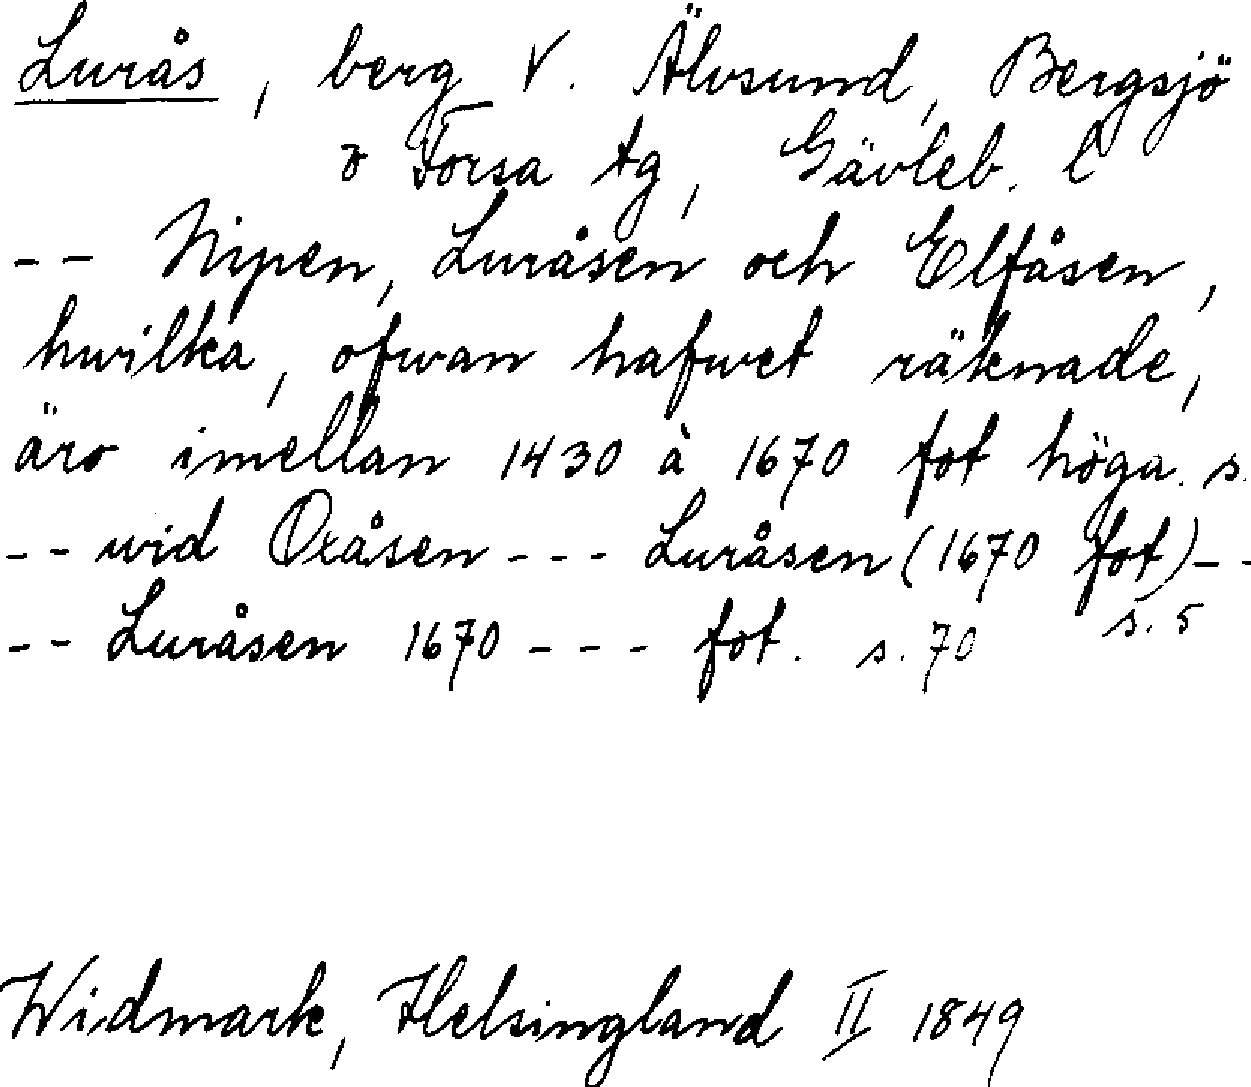 Lurås, berg V. Älvsund, Bergsjö
o Forsa tg, Gävleb. l
-- Nipen, Luråsen och Elfåsen,
hwilka, ofwan hafwet räknade,
äro imellan 1430 à 1670 fot höga. s.
-- wid Oxåsen --- Luråsen (1670 fot)--
s. 5
-- Luråsen 1670 --- fot. s. 70
Widmark, Helsingland II 1849